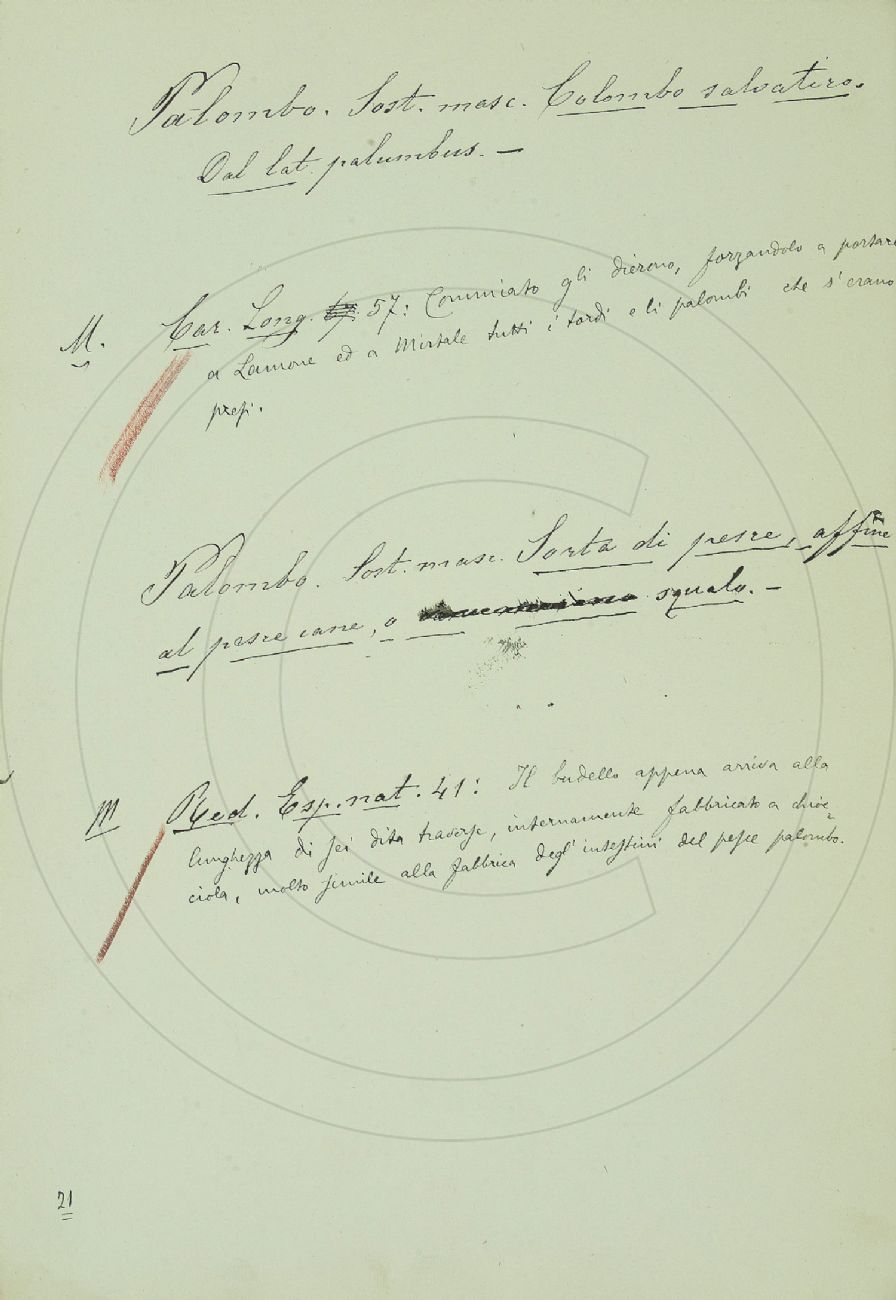 Palombo. Sost. masc. Colombo salvatico.
Dal lat. palumbus. —
M. Car. Long. 57: Commiato gli dierono, forzandolo a portare
a Lamone ed a Mirtale tutti i tordi e li palombi che s'erano
presi.
Palombo. Sost. masc. Sorta di pesce, affine
al pesce cane, o squalo. —
M Red. Esp. nat. 41: Il budello appena arriva alla
lunghezza di sei dita traverse, internamente fabbricato a chioc=
ciola, molto simile alla fabbrica degl'intestini del pesce palombo.
21